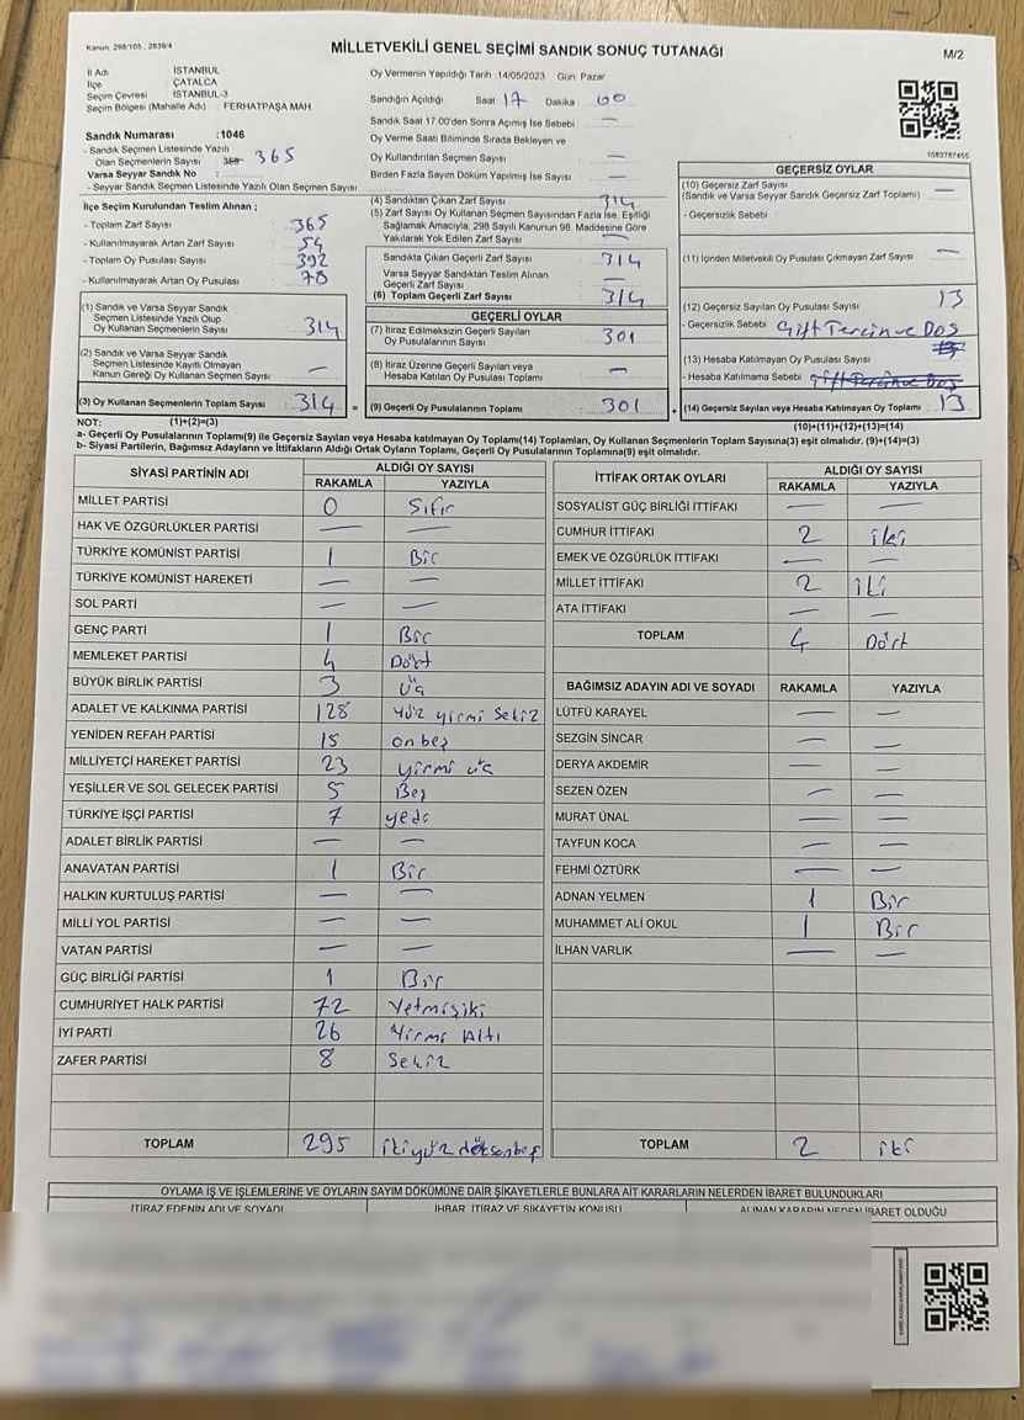 Kanun: 298/105 , 2839/4
MİLLETVEKİLİ GENEL SEÇİMİ SANDIK SONUÇ TUTANAĞI
M/2
İl Adı İSTANBUL
İlçe ÇATALCA
Seçim Çevresi İSTANBUL-3
Seçim Bölgesi (Mahalle Adı) : FERHATPAŞA MAH
Sandık Numarası :1046
- Sandık Seçmen Listesinde Yazılı
Olan Seçmenlerin Sayısı 365
Varsa Seyyar Sandık No :
- Seyyar Sandık Seçmen Listesinde Yazılı Olan Seçmen Sayısı
İlçe Seçim Kurulundan Teslim Alınan ;
- Toplam Zarf Sayısı 365
- Kullanılmayarak Artan Zarf Sayısı 54
- Toplam Oy Pusulası Sayısı 392
- Kullanılmayarak Artan Oy Pusulası 78
(1) Sandık ve Varsa Seyyar Sandık
Seçmen Listesinde Yazılı Olup
Oy Kullanan Seçmenlerin Sayısı 314
(2) Sandık ve Varsa Seyyar Sandık
Seçmen Listesinde Kayıtlı Olmayan
Kanun Gereği Oy Kullanan Seçmen Sayısı —
(3) Oy Kullanan Seçmenlerin Toplam Sayısı 314
(1)+(2)=(3)
Oy Vermenin Yapıldığı Tarih :14/05/2023 Gün: Pazar
Sandığın Açıldığı Saat 17 Dakika 00
Sandık Saat 17.00'den Sonra Açımış İse Sebebi —
Oy Verme Saati Bitiminde Sırada Bekleyen ve
Oy Kullandırılan Seçmen Sayısı —
Birden Fazla Sayım Döküm Yapılmış İse Sayısı —
(4) Sandıktan Çıkan Zarf Sayısı 314
(5) Zarf Sayısı Oy Kullanan Seçmen Sayısından Fazla İse, Eşitliği
Sağlamak Amacıyla, 298 Sayılı Kanunun 98. Maddesine Göre
Yakılarak Yok Edilen Zarf Sayısı —
Sandıkta Çıkan Geçerli Zarf Sayısı 314
Varsa Seyyar Sandıktan Teslim Alınan
Geçerli Zarf Sayısı —
(6) Toplam Geçerli Zarf Sayısı 314
GEÇERLİ OYLAR
(7) İtiraz Edilmeksizin Geçerli Sayılan
Oy Pusulalarının Sayısı 301
(8) İtiraz Üzerine Geçerli Sayılan veya
Hesaba Katılan Oy Pusulaları Toplamı —
= (9) Geçerli Oy Pusulalarının Toplamı 301
1583787455
GEÇERSİZ OYLAR
(10) Geçersiz Zarf Sayısı —
(Sandık ve Varsa Seyyar Sandık Geçersiz Zarf Toplamı)
- Geçersizlik Sebebi
(11) İçinden Milletvekili Oy Pusulası Çıkmayan Zarf Sayısı —
(12) Geçersiz Sayılan Oy Pusulası Sayısı 13
- Geçersizlik Sebebi Çift Tercih ve
(13) Hesaba Katılmayan Oy Pusulası Sayısı
- Hesaba Katılmama Sebebi
+ (14) Geçersiz Sayılan veya Hesaba Katılmayan Oy Toplamı 13
(10)+(11)+(12)+(13)=(14)
NOT:
a- Geçerli Oy Pusulalarının Toplamı(9) ile Geçersiz Sayılan veya Hesaba katılmayan Oy Toplamı(14) Toplamları, Oy Kullanan Seçmenlerin Toplam Sayısına(3) eşit olmalıdır. (9)+(14)=(3)
b- Siyasi Partilerin, Bağımsız Adayların ve İttifakların Aldığı Ortak Oyların Toplamı, Geçerli Oy Pusulalarının Toplamına(9) eşit olmalıdır.
SİYASİ PARTİNİN ADI ALDIĞI OY SAYISI
RAKAMLA YAZIYLA
MİLLET PARTİSİ 0 Sıfır
HAK VE ÖZGÜRLÜKLER PARTİSİ — —
TÜRKİYE KOMÜNİST PARTİSİ 1 Bir
TÜRKİYE KOMÜNİST HAREKETİ — —
SOL PARTİ — —
GENÇ PARTİ 1 Bir
MEMLEKET PARTİSİ 4 Dört
BÜYÜK BİRLİK PARTİSİ 3 Üç
ADALET VE KALKINMA PARTİSİ 128 Yüz yirmi Sekiz
YENİDEN REFAH PARTİSİ 15 on beş
MİLLİYETÇİ HAREKET PARTİSİ 23 yirmi üç
YEŞİLLER VE SOL GELECEK PARTİSİ 5 Beş
TÜRKİYE İŞÇİ PARTİSİ 7 yedi
ADALET BİRLİK PARTİSİ — —
ANAVATAN PARTİSİ 1 Bir
HALKIN KURTULUŞ PARTİSİ — —
MİLLİ YOL PARTİSİ — —
VATAN PARTİSİ — —
GÜÇ BİRLİĞİ PARTİSİ 1 Bir
CUMHURİYET HALK PARTİSİ 72 Yetmişiki
İYİ PARTİ 26 Yirmi Altı
ZAFER PARTİSİ 8 Sekiz
TOPLAM 295 ikiyüz doksanbeş
İTTİFAK ORTAK OYLARI ALDIĞI OY SAYISI
RAKAMLA YAZIYLA
SOSYALİST GÜÇ BİRLİĞİ İTTİFAKI — —
CUMHUR İTTİFAKI 2 iki
EMEK VE ÖZGÜRLÜK İTTİFAKI — —
MİLLET İTTİFAKI 2 iki
ATA İTTİFAKI — —
TOPLAM 4 Dört
BAĞIMSIZ ADAYIN ADI VE SOYADI RAKAMLA YAZIYLA
LÜTFÜ KARAYEL — —
SEZGİN SİNCAR — —
DERYA AKDEMİR — —
SEZEN ÖZEN — —
MURAT ÜNAL — —
TAYFUN KOCA — —
FEHMİ ÖZTÜRK — —
ADNAN YELMEN 1 Bir
MUHAMMET ALİ OKUL 1 Bir
İLHAN VARLIK — —
TOPLAM 2 iki
OYLAMA İŞ VE İŞLEMLERİNE VE OYLARIN SAYIM DÖKÜMÜNE DAİR ŞİKAYETLERLE BUNLARA AİT KARARLARIN NELERDEN İBARET BULUNDUKLARI
İTİRAZ EDENİN ADI VE SOYADI İHBAR, İTİRAZ VE ŞİKAYETİN KONUSU ALINAN KARARIN NEDEN İBARET OLDUĞU